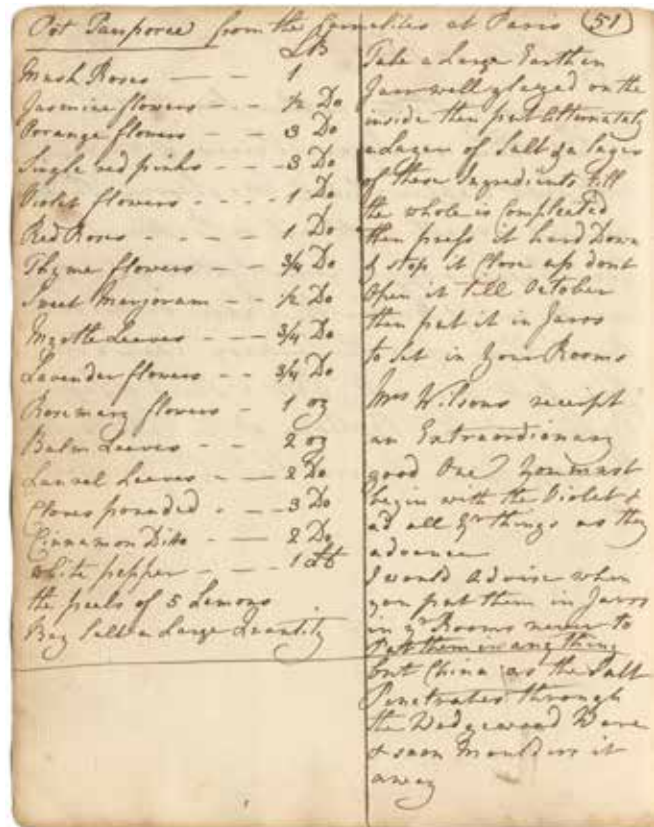 Pot Pauporee from the Carmelites at Paris (51)
LB
Musk Roses — 1
Jasmine flowers - - ½ Do
Oorange flowers - - 3 Do
Single red pinks - - - 3 Do
Violet flowers - - - - 1 Do
Red Roses - - - - 1 Do
Thyme flowers - - - ¾ Do
Sweet Marjoram - - ½ Do
Myrtle Leaves - - - ¾ Do
Lavender flowers - - ¾ Do
Rosemary flowers - - 1 oz
Balm Leaves - - - 2 oz
Laurel Leaves - - - 2 Do
Cloves pounded - - - 3 Do
Cinnamon Ditto - - - 2 Do
white pepper - - - 1 Lb
the peels of 5 Lemons
Bay Salt a Large Quantity
Take a Large Earthen
Jarr well glazed on the
inside then put alternately
a Layer of Salt & a layer
of these Ingredients till
the whole is Compleated
then press it hard Down
& stop it Close up dont
Open it till October
then put it in Jarrs
to Set in Your Rooms
Mrs Wilsons receipt
an Extraordionary
good One You must
begin with the Violet &
ad all yr things as they
advance
I would Advise when
you put them in Jarrs
in yr Rooms never to
Put them in any thing
but China as the Salt
Penetrates through
the Wedgewood Ware
& soon Moulders it
away